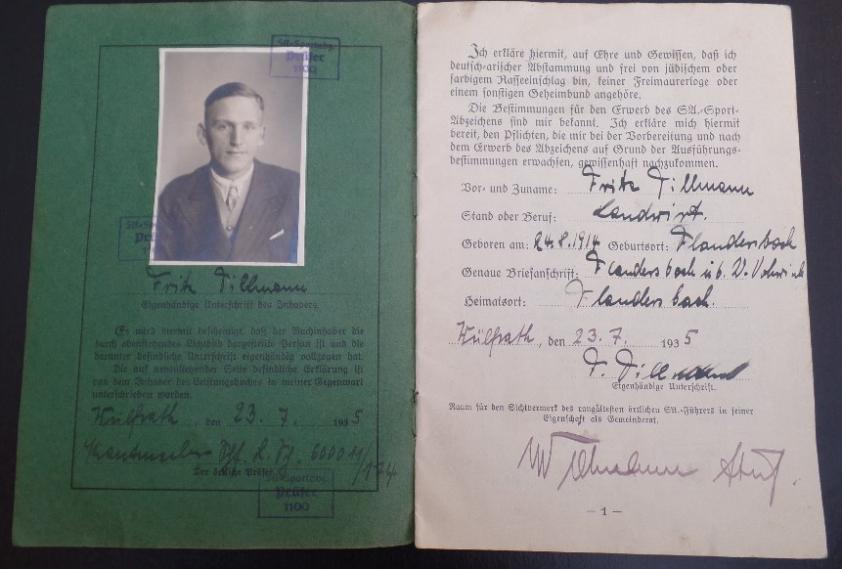 SA-Sportabz.
Prüfer
1100
Prüf
Fritz Tillmann
Eigenhändige Unterschrift des Inhabers.
Es wird hiermit bescheinigt, daß der Buchinhaber die
durch obenstehendes Lichtbild dargestellte Person ist und die
darunter befindliche Unterschrift eigenhändig vollzogen hat.
Die auf nebenstehender Seite befindliche Erklärung ist
von dem Inhaber des Leistungsbuches in meiner Gegenwart
unterschrieben worden.
Wülfrath, den 23. 7. 1935
Der Prüfer
SA-Sportabz.
Prüfer
1100
Ich erkläre hiermit, auf Ehre und Gewissen, daß ich
deutsch-arischer Abstammung und frei von jüdischem oder
farbigem Rasseeinschlag bin, keiner Freimaurerloge oder
einem sonstigen Geheimbund angehöre.
Die Bestimmungen für den Erwerb des SA.-Sport-
Abzeichens sind mir bekannt. Ich erkläre mich hiermit
bereit, den Pflichten, die mir bei der Vorbereitung und nach
dem Erwerb des Abzeichens auf Grund der Ausführungs-
bestimmungen erwachsen, gewissenhaft nachzukommen.
Vor- und Zuname: Fritz Tillmann
Stand oder Beruf: Landwirt.
Geboren am: 24.8.1914 Geburtsort: Flandersbach
Genaue Briefanschrift: Flandersbach üb. W. Vohwinkel
Heimatsort: Flandersbach.
Wülfrath, den 23. 7. 1935
F. Tillmann
Eigenhändige Unterschrift.
Raum für den Sichtvermerk des rangältesten örtlichen SA.-Führers in seiner
Eigenschaft als Gemeinderat.
– 1 –